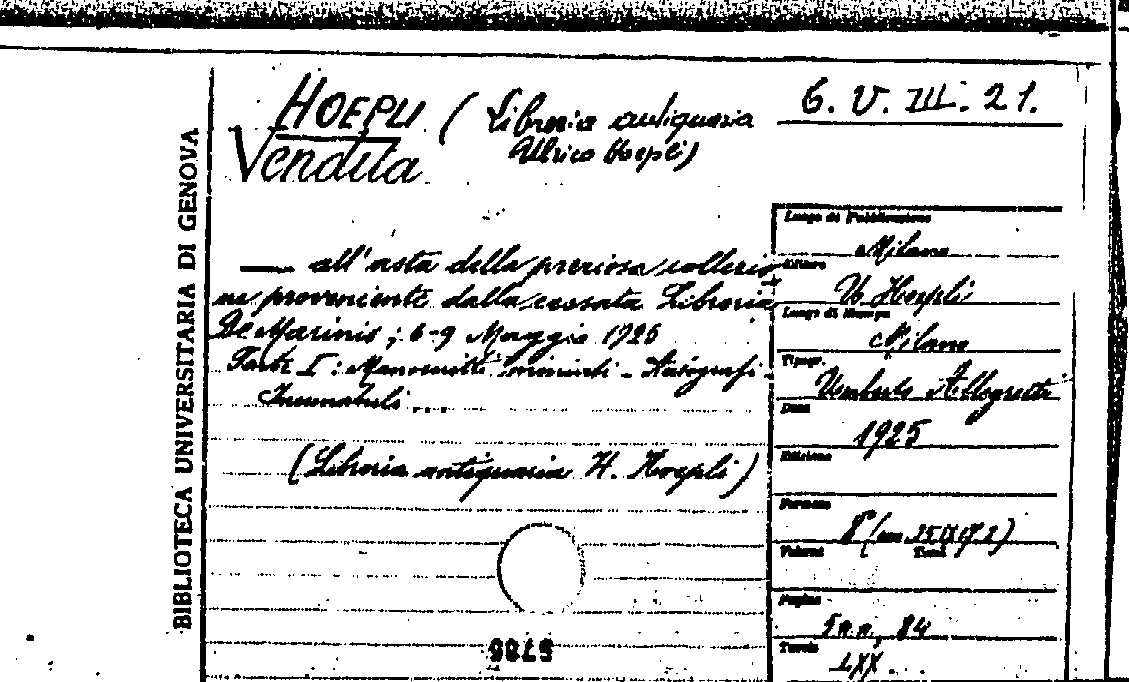 BIBLIOTECA UNIVERSITARIA DI GENOVA
HOEPLI (Libreria antiquaria
Ulrico Hoepli)
Vendita
6. V. III. 21.
— all'asta della preziosa collezio
ne proveniente dalla cessata Libreria
De Marinis; 6-9 Maggio 1925
Parte I: Manoscritti miniati - Autografi -
Incunabuli ...
(Libreria antiquaria H. Hoepli)
Luogo di Pubblicazione
Milano
Editore
U. Hoepli
Luogo di Stampa
Milano
Tipogr.
Umberto Allegretti
Data
1925
Edizione
Formato
8°
Volumi
Pagine
5 n.n., 84
Tavole
LXX
5786